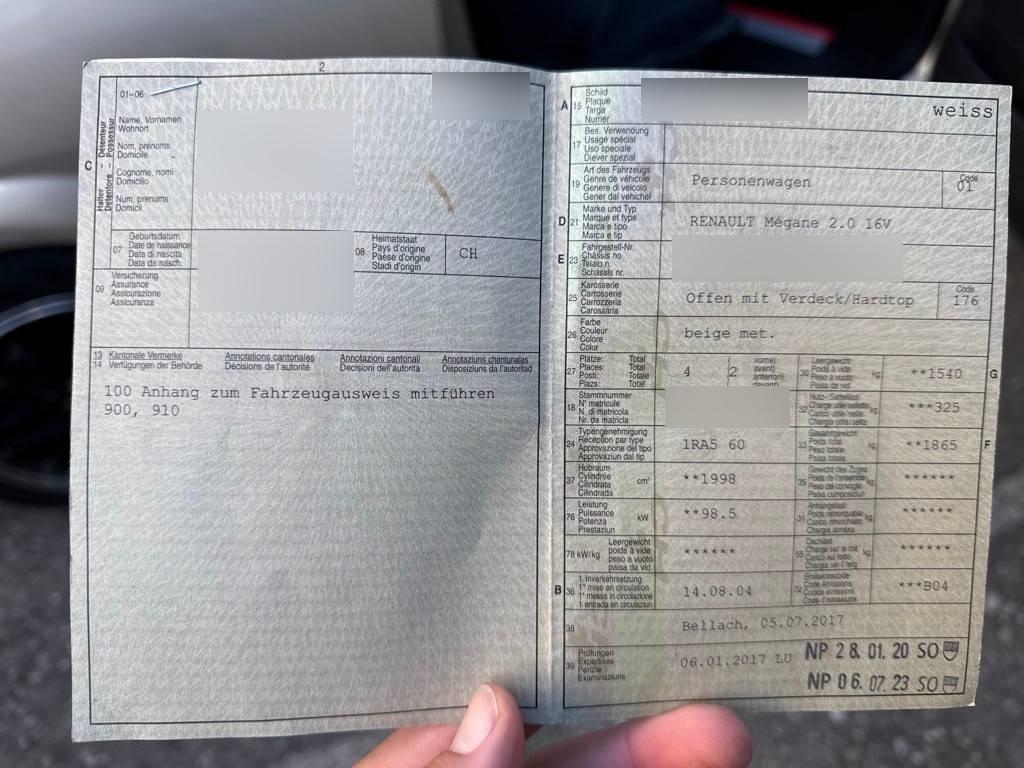 2
01–06
Name, Vornamen
Wohnort
Nom, prénoms
Domicile
Cognome, nomi
Domicilio
Num, prenums
Domicil
C
Halter – Détenteur
Detentore – Possessur
07
Geburtsdatum
Date de naissance
Data di nascita
Data da nasch.
08
Heimatstaat
Pays d'origine
Paese d'origine
Stadi d'origin
CH
09
Versicherung
Assurance
Assicurazione
Assicuranza
13
14
Kantonale Vermerke
Verfügungen der Behörde
Annotations cantonales
Décisions de l'autorité
Annotazioni cantonali
Decisioni dell'autorità
Annotaziuns chantunalas
Disposiziuns da l'autoritad
100 Anhang zum Fahrzeugausweis mitführen
900, 910
A 15
Schild
Plaque
Targa
Numer
weiss
17
Bes. Verwendung
Usage spécial
Uso speciale
Diever spezial
19
Art des Fahrzeugs
Genre de véhicule
Genere di veicolo
Gener dal vehichel
Personenwagen
Code
01
D 21
Marke und Typ
Marque et type
Marca e tipo
Marca e tip
RENAULT Mégane 2.0 16V
E 23
Fahrgestell-Nr.
Châssis no
Telaio n.
Schassis nr.
25
Karosserie
Carrosserie
Carrozzeria
Carossaria
Offen mit Verdeck/Hardtop
Code
176
26
Farbe
Couleur
Colore
Colur
beige met.
27
Plätze: Total
Places: Total
Posti: Totale
Plazs: Total
4
(2
vorne)
avant)
anteriori)
davant)
30
Leergewicht
Poids à vide
Peso a vuoto
Paisa da vid
kg
**1540
G
18
Stammnummer
N° matricule
N. di matricola
Nr. da matricla
32
Nutz-/Sattellast
kg
***325
24
Typengenehmigung
Réception par type
Approvazione del tipo
Approvaziun dal tip
1RA5 60
33
Gesamtgewicht
Poids total
Peso totale
Paisa totala
kg
**1865
F
37
Hubraum
Cylindrée
Cilindrata
Cilindrada
cm³
**1998
35
Gewicht des Zuges
Poids de l'ensemble
kg
******
76
Leistung
Puissance
Potenza
Prestaziun
kW
**98.5
31
Anhängelast
Poids remorquable
kg
******
78 kW/kg
Leergewicht
poids à vide
peso a vuoto
paisa da vid
******
55
Dachlast
Charge sur le toit
kg
******
B 36
1. Inverkehrsetzung
1re mise en circulation
1a messa in circolazione
1. entrada en circulaziun
14.08.04
72
Emissionscode
Code émissions
Codice emissioni
Code d'emissiuns
***B04
38
Bellach, 05.07.2017
39
Prüfungen
Expertises
Perizie
Examinaziuns
06.01.2017 LU
NP 28. 01. 20 SO
NP 06. 07. 23 SO